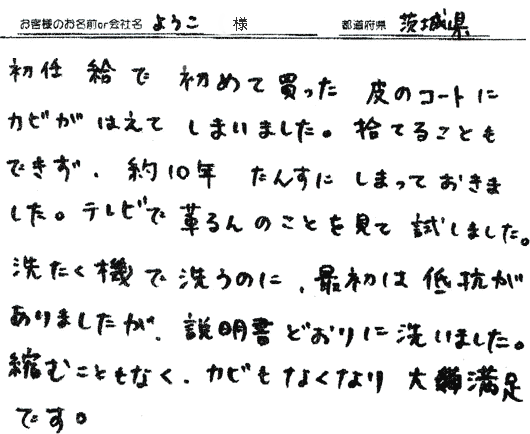 お客様のお名前or会社名 ようこ 様 都道府県 茨城県
初任給で 初めて買った 皮のコートに
カビが はえて しまいました。捨てることも
できず、約10年 たんすに しまって おきま
した。テレビで 革るんのことを見て 試しました。
洗たく機で洗うのに、最初は 低抗が
ありましたが、説明書どおりに洗いました。
縮むこともなく、カビもなくなり 大満足
です。